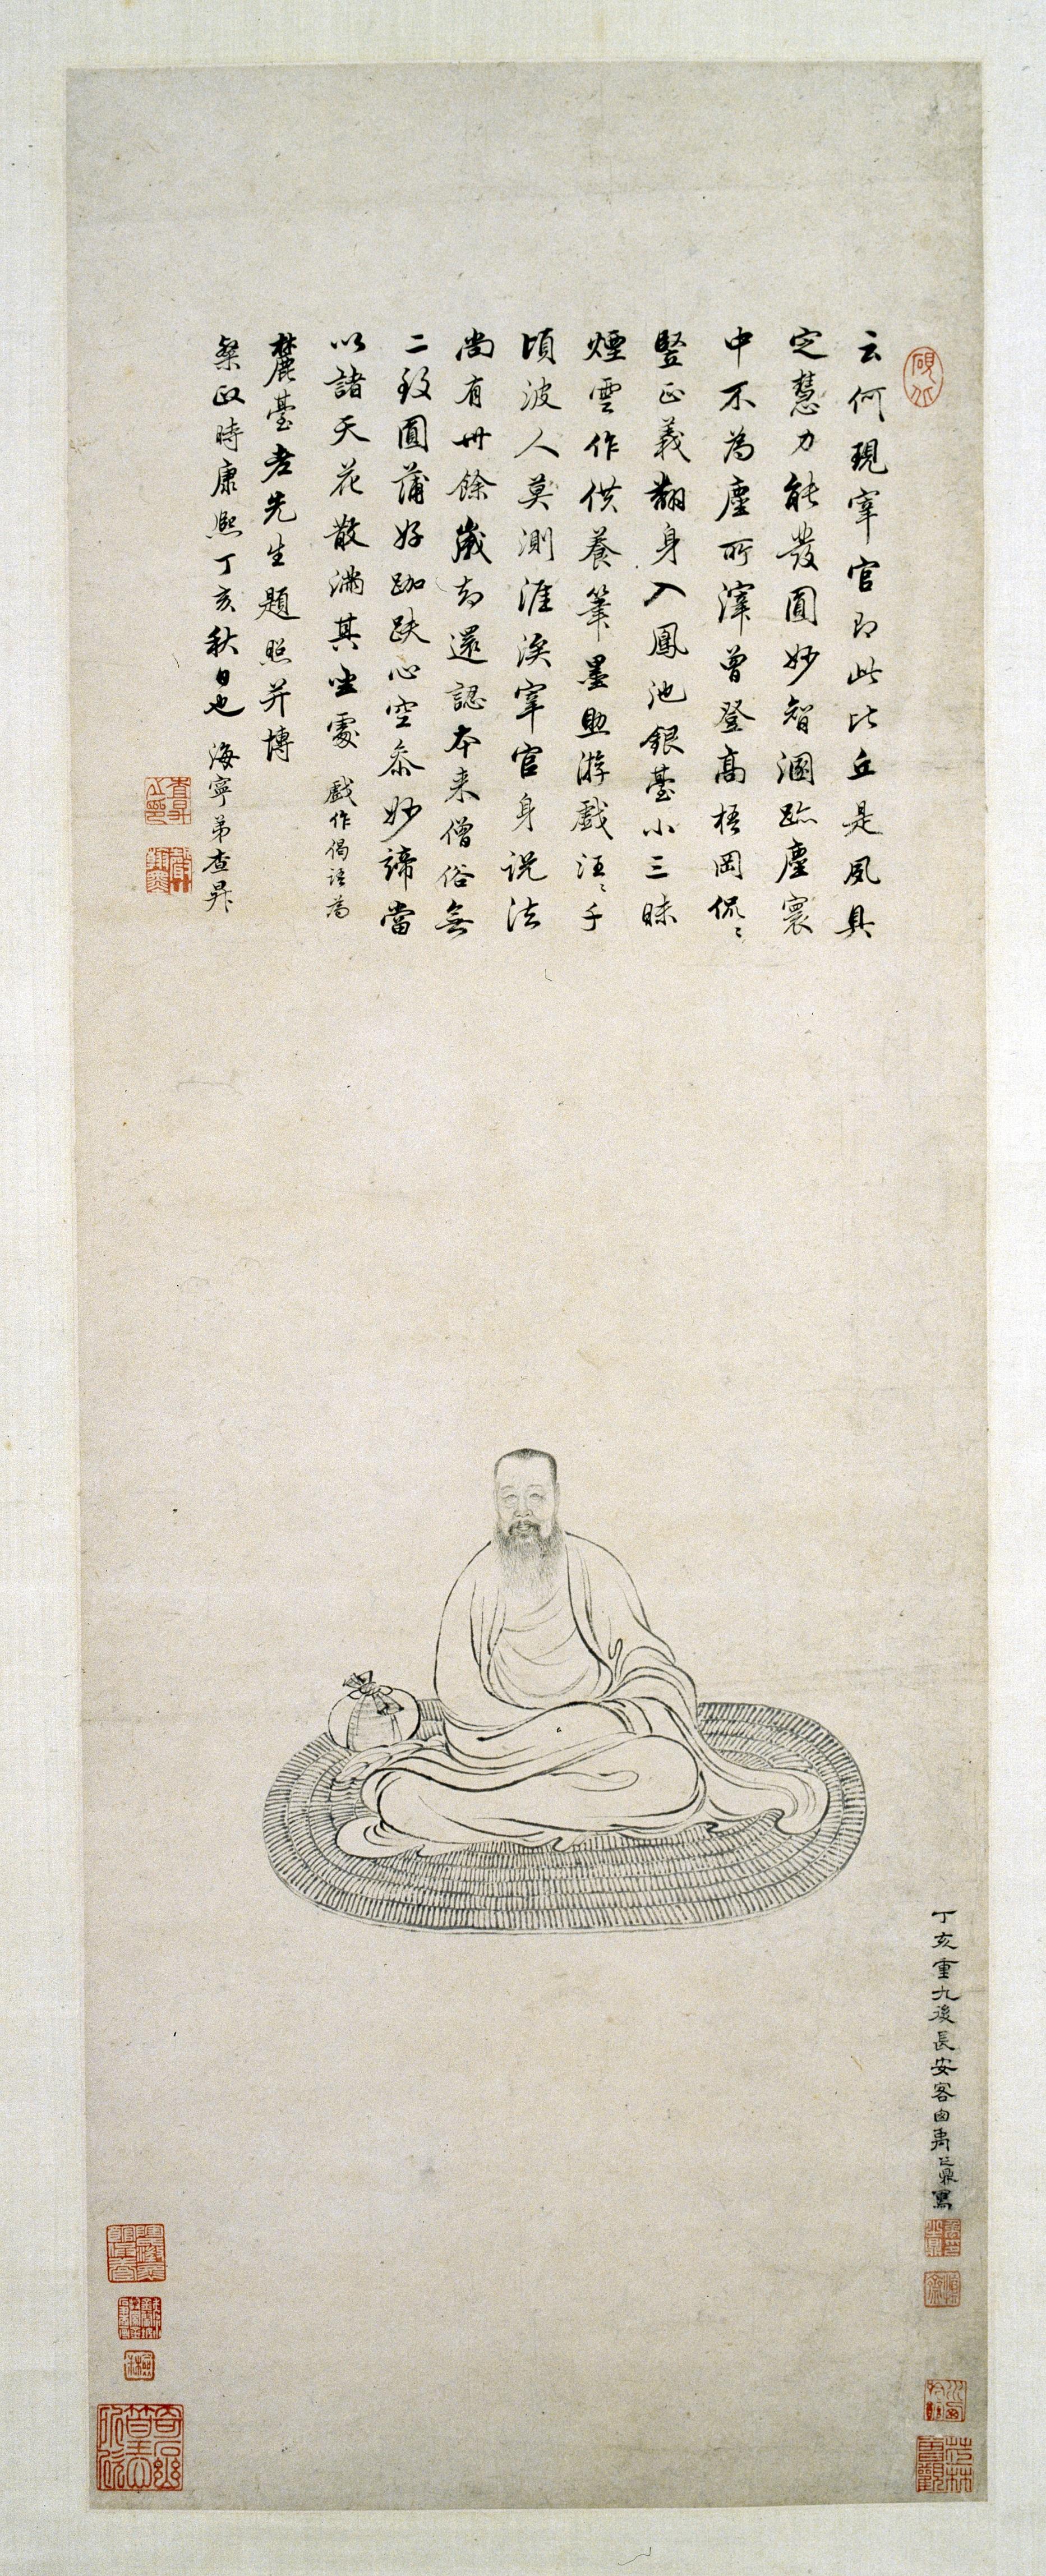 云何現宰官即此比丘是夙具
定慧力能發圓妙智溷跡塵寰
中不為塵所滓曾登高梧岡侃〻
豎正義翻身入鳳池銀臺小三昧
煙雲作供養筆墨點游戲汪〻千
頃波人莫測涯涘宰官身説法
尚有卅餘歲却還認本来僧俗無
二致圓蒲好跏趺心空叅妙諦當
以諸天花散滿其坐處 戲作偈語為
麓臺老先生題照并博
粲政時康熙丁亥秋日也 海寧弟查昇
丁亥重九後長安客囪禹之鼎寫